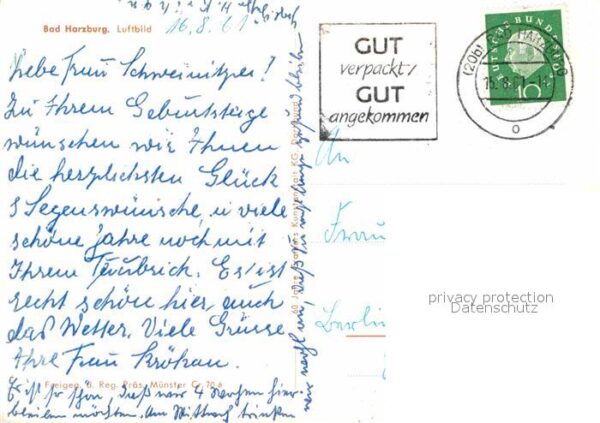 Bad Harzburg. Luftbild
16.8.61
Liebe Frau Schweinitzer!
Zu Ihrem Geburtstage
wünschen wir Ihnen
die herzlichsten Glück
& Segenswünsche, u viele
schöne Jahre noch mit
Ihrem. Es ist
recht schön hier, auch
das Wetter. Viele Grüsse,
Ihre Frau Krökan.
Es ist so schön, daß wir 4 Wochen hier
bleiben möchten. Am Mittwoch trinken
Freigeg. d. Reg. Präs. Münster Cr. 70
GUT
verpackt,
GUT
angekommen
DEUTSCHE BUNDESPOST
10
(20b) BAD HARZBURG
15.8.61
An
Frau
Berlin
privacy protection
Datenschutz